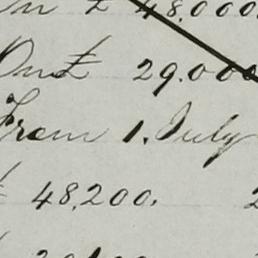 On £ 48.000.
On £ 29.000
From 1. July
£ 48,200.